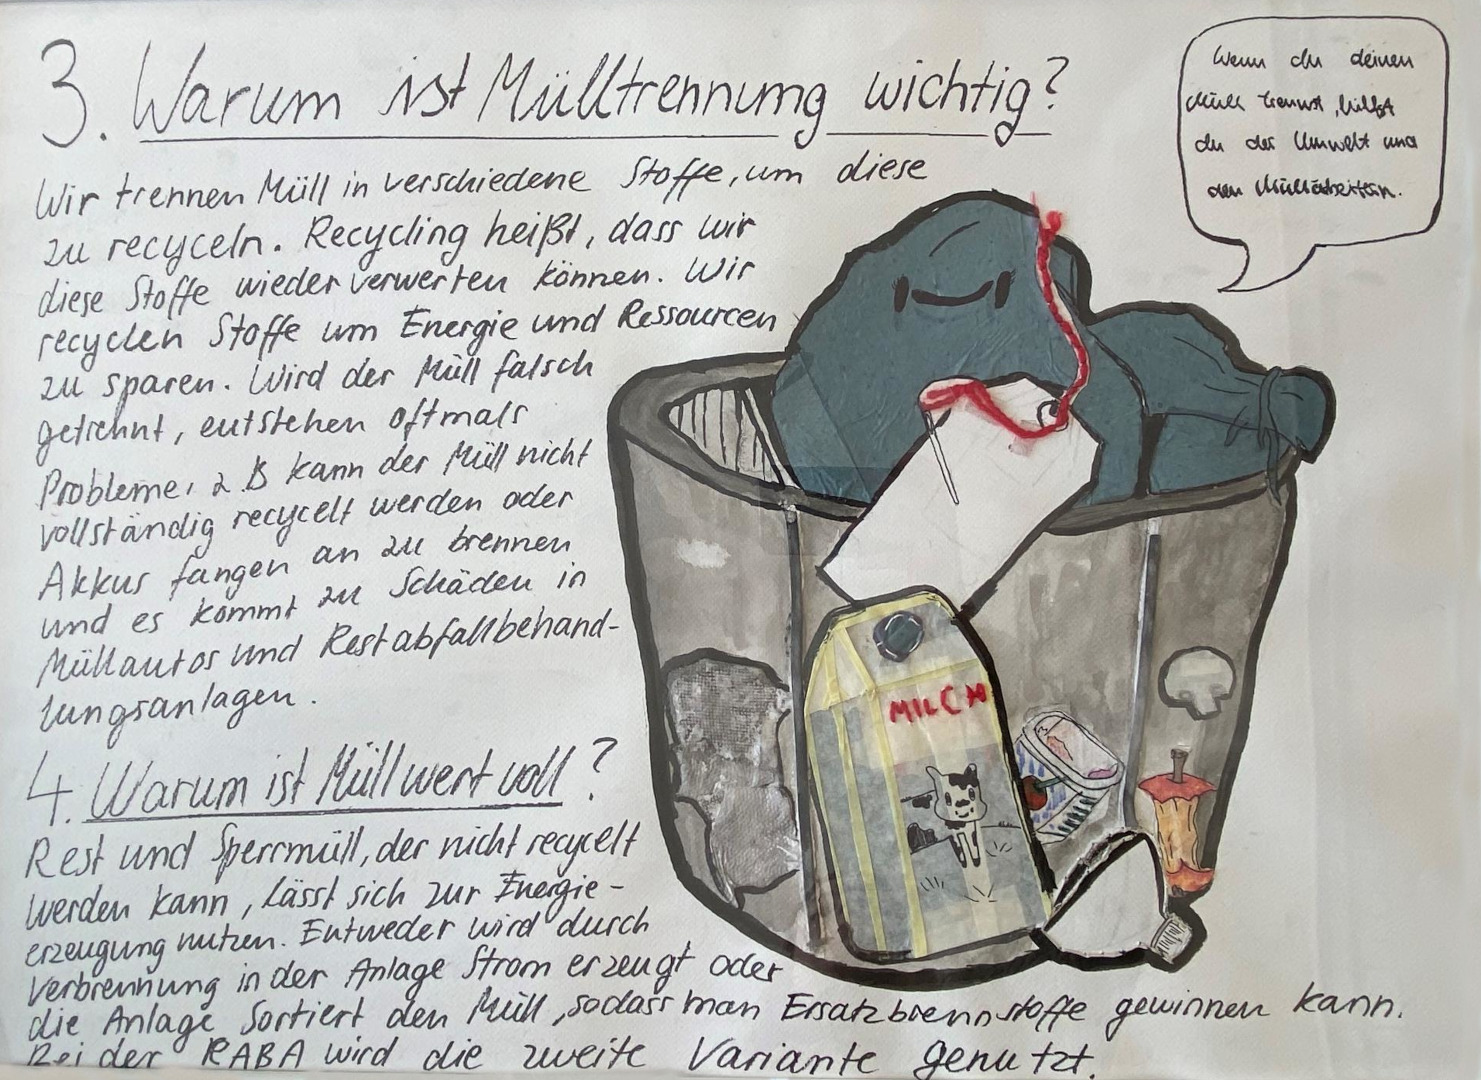 3. Warum ist Mülltrennung wichtig?
Wir trennen Müll in verschiedene Stoffe, um diese
zu recyceln. Recycling heißt, dass wir
diese Stoffe wieder verwerten können. Wir
recyclen Stoffe um Energie und Ressourcen
zu sparen. Wird der Müll falsch
getrennt, entstehen oftmals
Probleme, z.B kann der Müll nicht
vollständig recycelt werden oder
Akkus fangen an zu brennen
und es kommt zu Schäden in
Müllautos und Restabfallbehand-
lungsanlagen.
4. Warum ist Müll wertvoll?
Rest und Sperrmüll, der nicht recycelt
werden kann, lässt sich zur Energie-
erzeugung nutzen. Entweder wird durch
Verbrennung in der Anlage Strom erzeugt oder
die Anlage Sortiert den Müll, sodass man Ersatzbrennstoffe gewinnen kann.
Bei der RABA wird die zweite Variante genutzt.
Wenn du deinen
Müll trennst, hilfst
du der Umwelt und
den Müllarbeitern.
MILCH